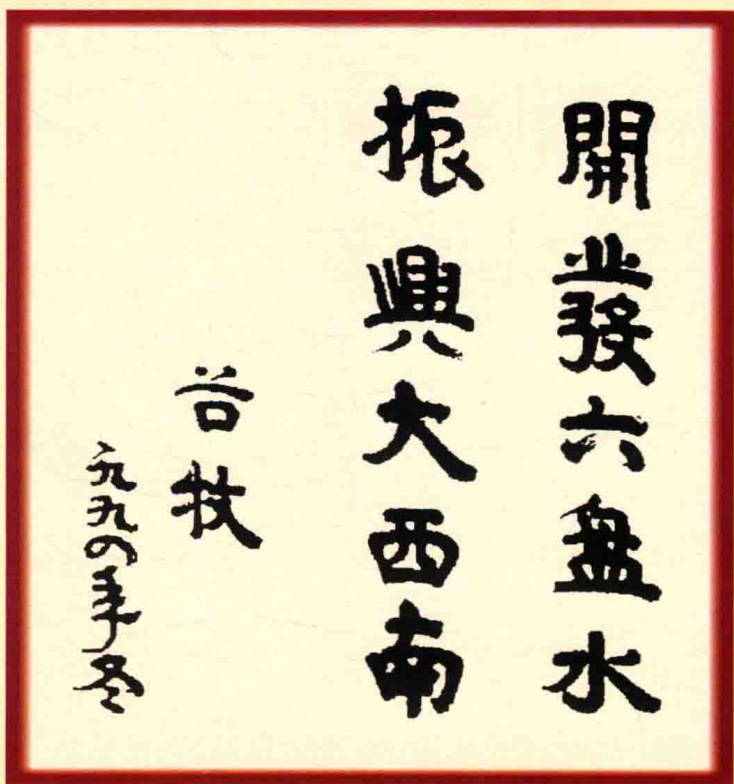 開發六盘水
振興大西南
谷牧
一九九四年冬